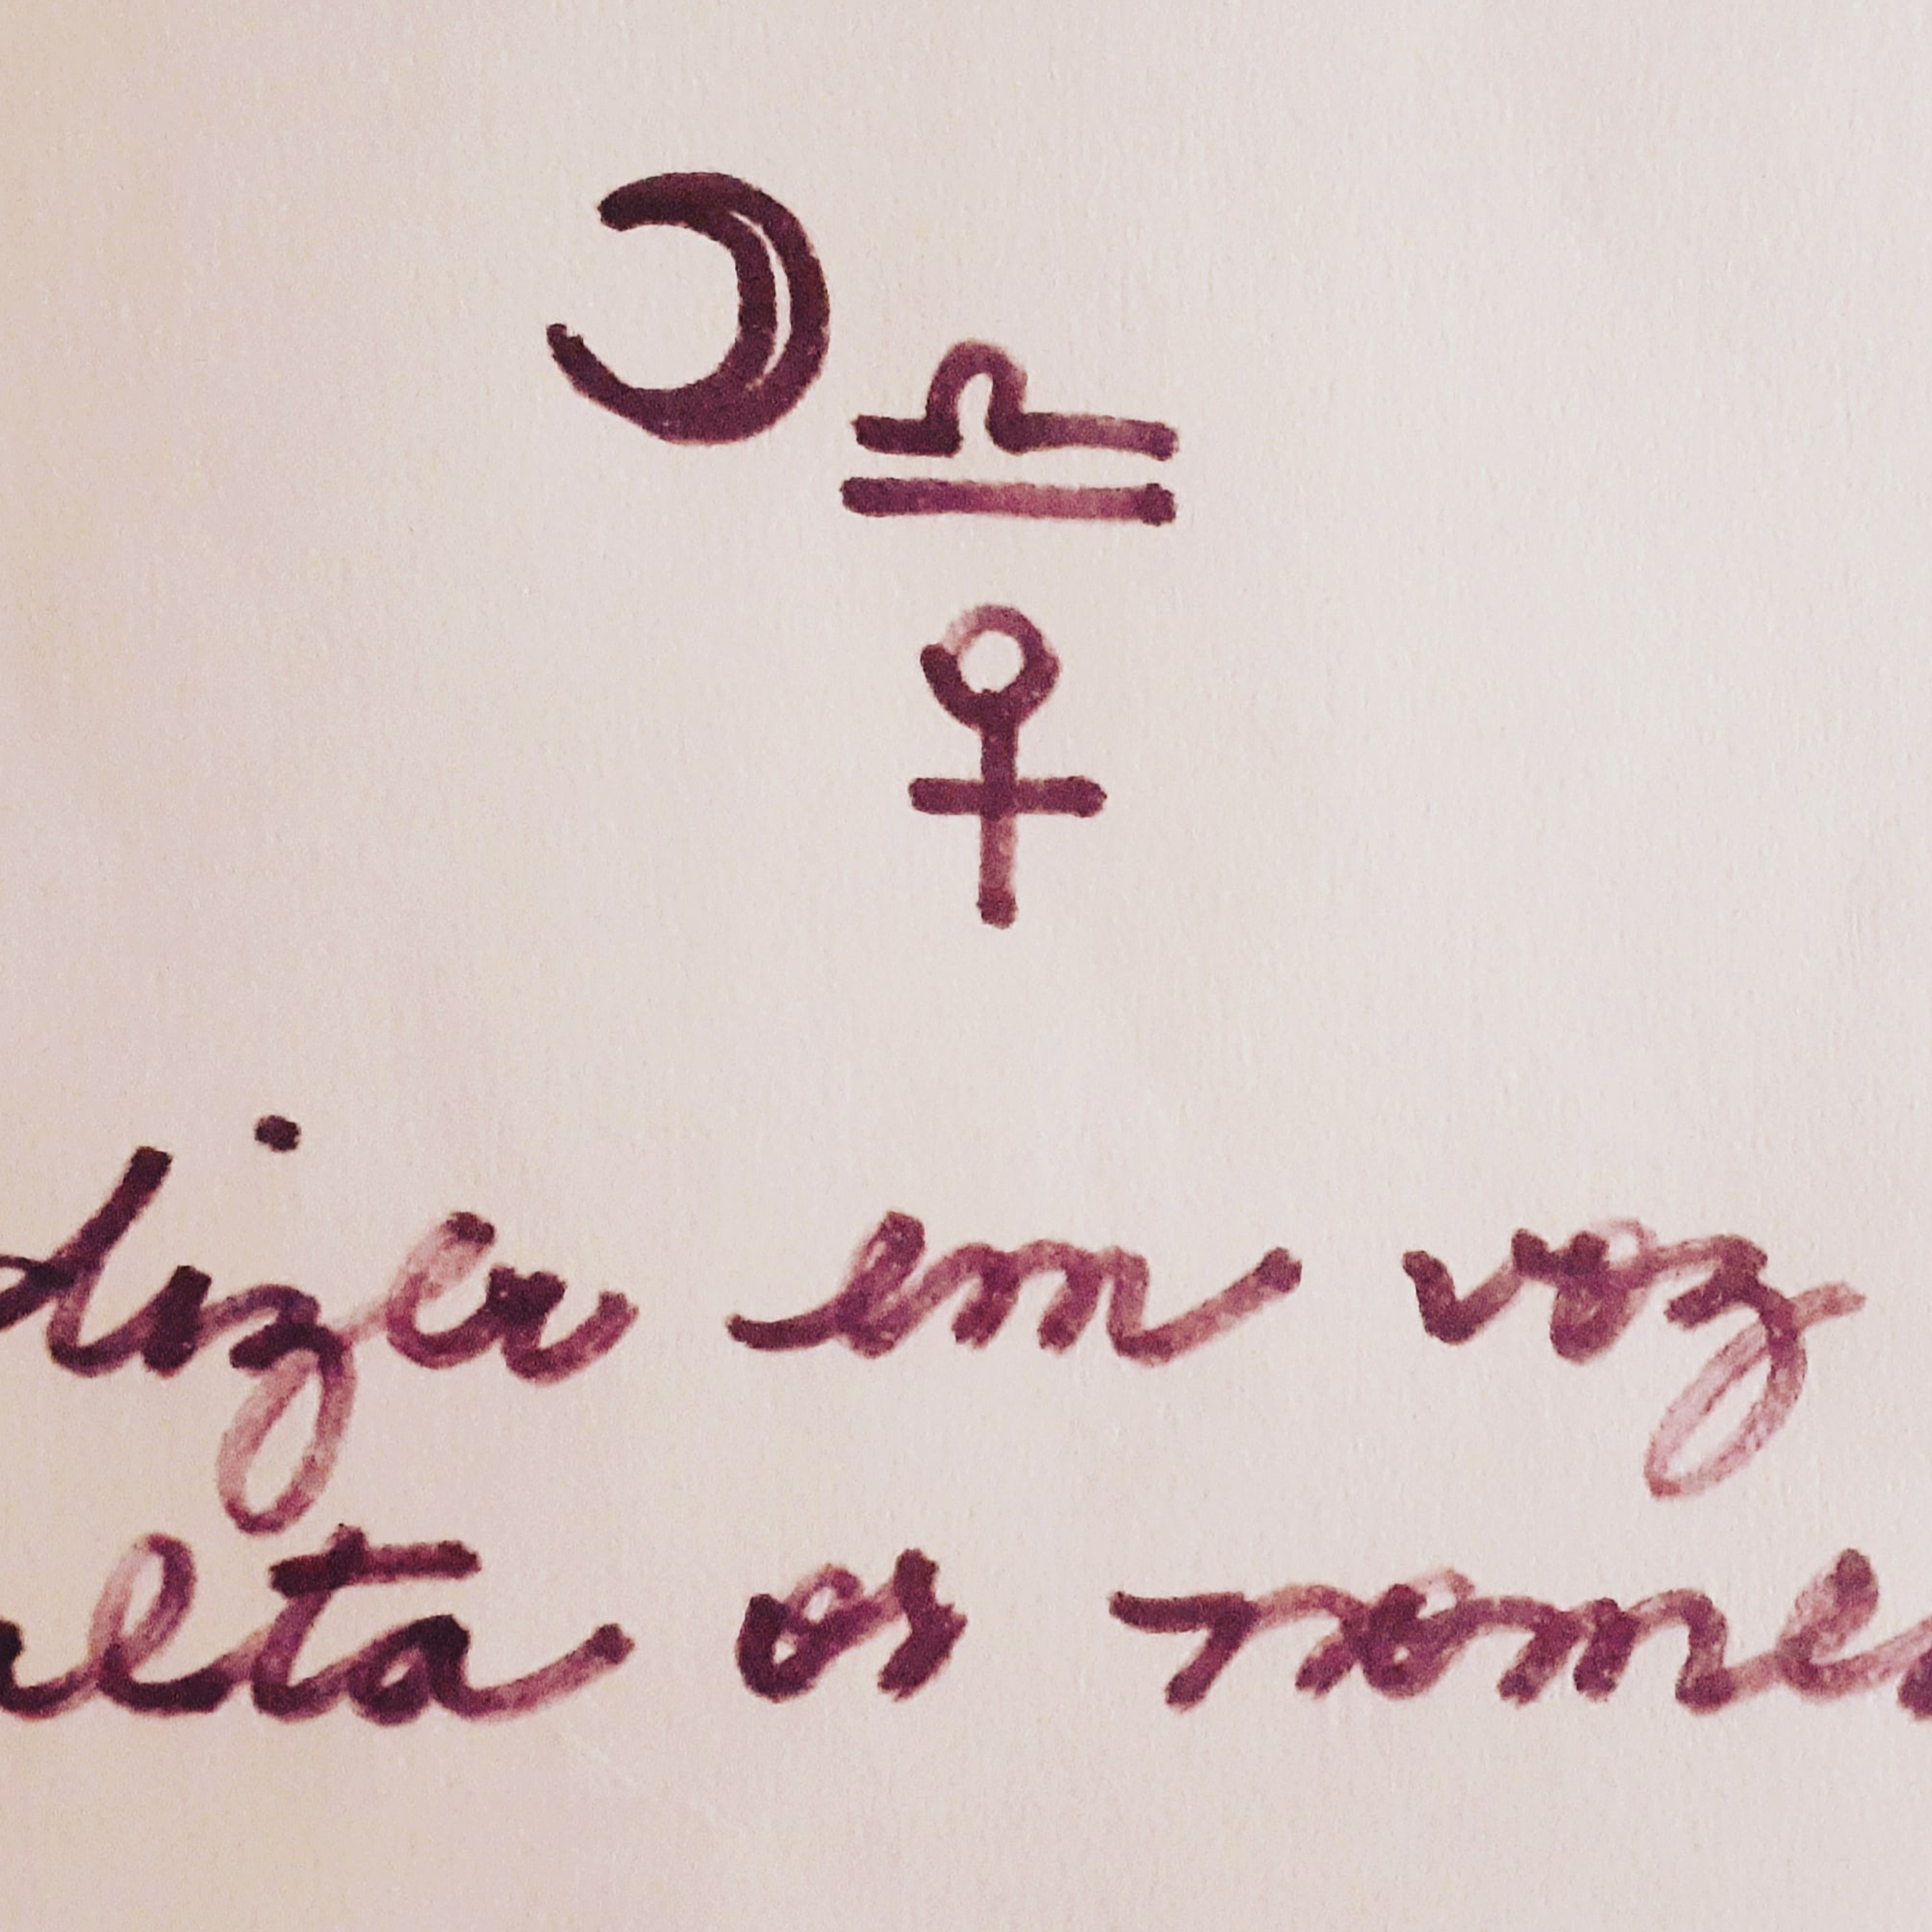 ☽ ♎
♀
dizer em voz
alta os nomes